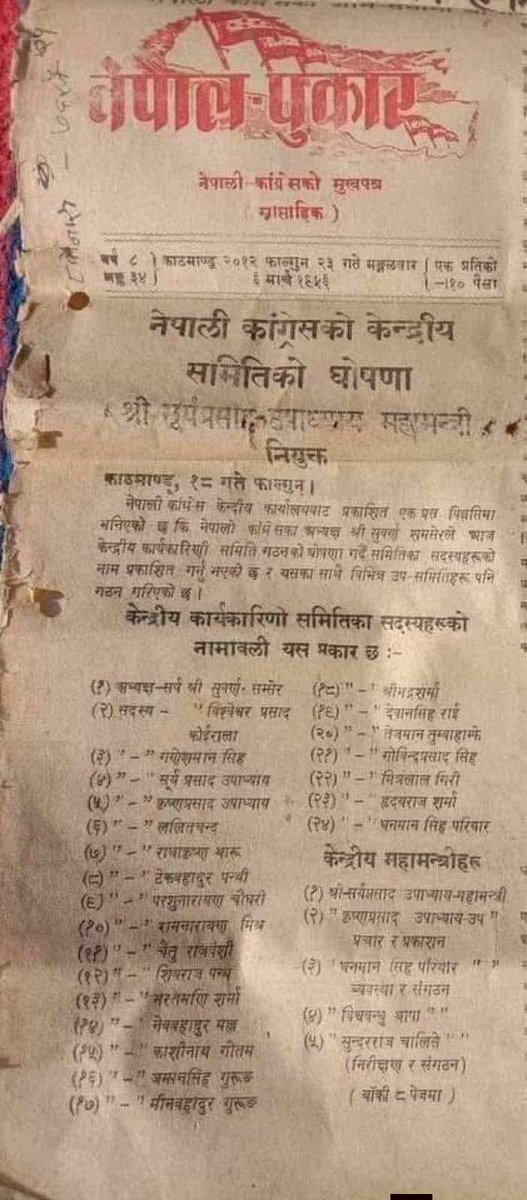 नेपाल पुकार
नेपाली कांग्रेसको मुखपत्र
( साप्ताहिक )
वर्ष ८ | काठमाण्डू २०१२ फाल्गुन २३ गते मङ्गलवार | एक प्रतिको
अङ्क ३४ | ६ मार्च १९५६ | -।१० पैसा
नेपाली कांग्रेसको केन्द्रीय
समितिको घोषणा
( श्री सूर्यप्रसाद उपाध्याय महामन्त्री
नियुक्त
काठमाण्डू, १८ गते फाल्गुन ।
नेपाली कांग्रेस केन्द्रीय कार्यालयबाट प्रकाशित एक प्रेस विज्ञप्तिमा
भनिएको छ कि नेपाली कांग्रेसका अध्यक्ष श्री सुवर्ण शमसेरले आज
केन्द्रीय कार्यकारिणी समिति गठनको घोषणा गर्दै समितिका सदस्यहरूको
नाम प्रकाशित गर्नु भएको छ र यसका साथै विभिन्न उप-समितिहरू पनि
गठन गरिएको छ ।
केन्द्रीय कार्यकारिणी समितिका सदस्यहरूको
नामावली यस प्रकार छ :-
(१) अध्यक्ष-सर्व श्री सुवर्ण- सम्सेर
(२) सदस्य - " विश्वेश्वर प्रसाद
कोईराला
(३) " - " गणेशमान सिंह
(४) " - " सूर्य प्रसाद उपाध्याय
(५) " - " कृष्णप्रसाद उपाध्याय
(६) " - " ललितचन्द
(७) " - " राधाकृष्ण थारू
(८) " - " टेकबहादुर पन्थी
(९) " - " परशुनारायण चौधरी
(१०) " - " रामनारायण मिश्र
(११) " - " चेतु राजवंशी
(१२) " - " शिवराज पन्थ
(१३) " - " भरतमणि शर्मा
(१४) " - " नेवबहादुर मल्ल
(१५) " - " काशीनाथ गौतम
(१६) " - " जमानसिंह गुरूङ
(१७) " - " मीनबहादुर गुरूङ
(१८) " - " श्रीभद्रशर्मा
(१९) " - " देवानसिंह राई
(२०) " - " तेजमान तुम्बाहाम्फे
(२१) " - " गोविन्दप्रसाद सिंह
(२२) " - " मित्रलाल गिरी
(२३) " - " हृदयराज शर्मा
(२४) " - " धनमान सिंह परियार
केन्द्रीय महामन्त्रीहरू
(१) श्री-सूर्यप्रसाद उपाध्याय-महामन्त्री
(२) " कृष्णप्रसाद उपाध्याय-उप "
प्रचार र प्रकाशन
(३) " धनमान सिंह परियार " "
व्यवस्था र संगठन
(४) " विश्वबन्धु थापा " "
(५) " सुन्दरराज चालिसे " "
(निरीक्षण र संगठन)
( बाँकी ८ पेजमा )